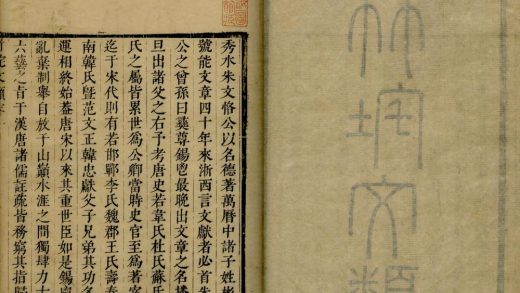 竹垞文類
秀水朱文恪公以名德著萬曆中諸子姓彬
號能文章四十年來浙西言文獻者必首朱
公之曾孫曰彝尊錫鬯最晚出文章之名播
旦出諸父之右予考唐史若韋氏杜氏蘇氏
氏之屬皆累世爲公卿當時史官至爲著宰
迄于宋代則有若邯鄲李氏魏郡王氏壽春
南韓氏暨范文正韓忠獻父子兄弟其功名
運相終始葢唐宋以來其重世臣如是錫鬯
亂棄制舉自放于山巔水涯之間獨肆力古
六藝之旨于漢唐諸儒註疏皆務窮其指歸